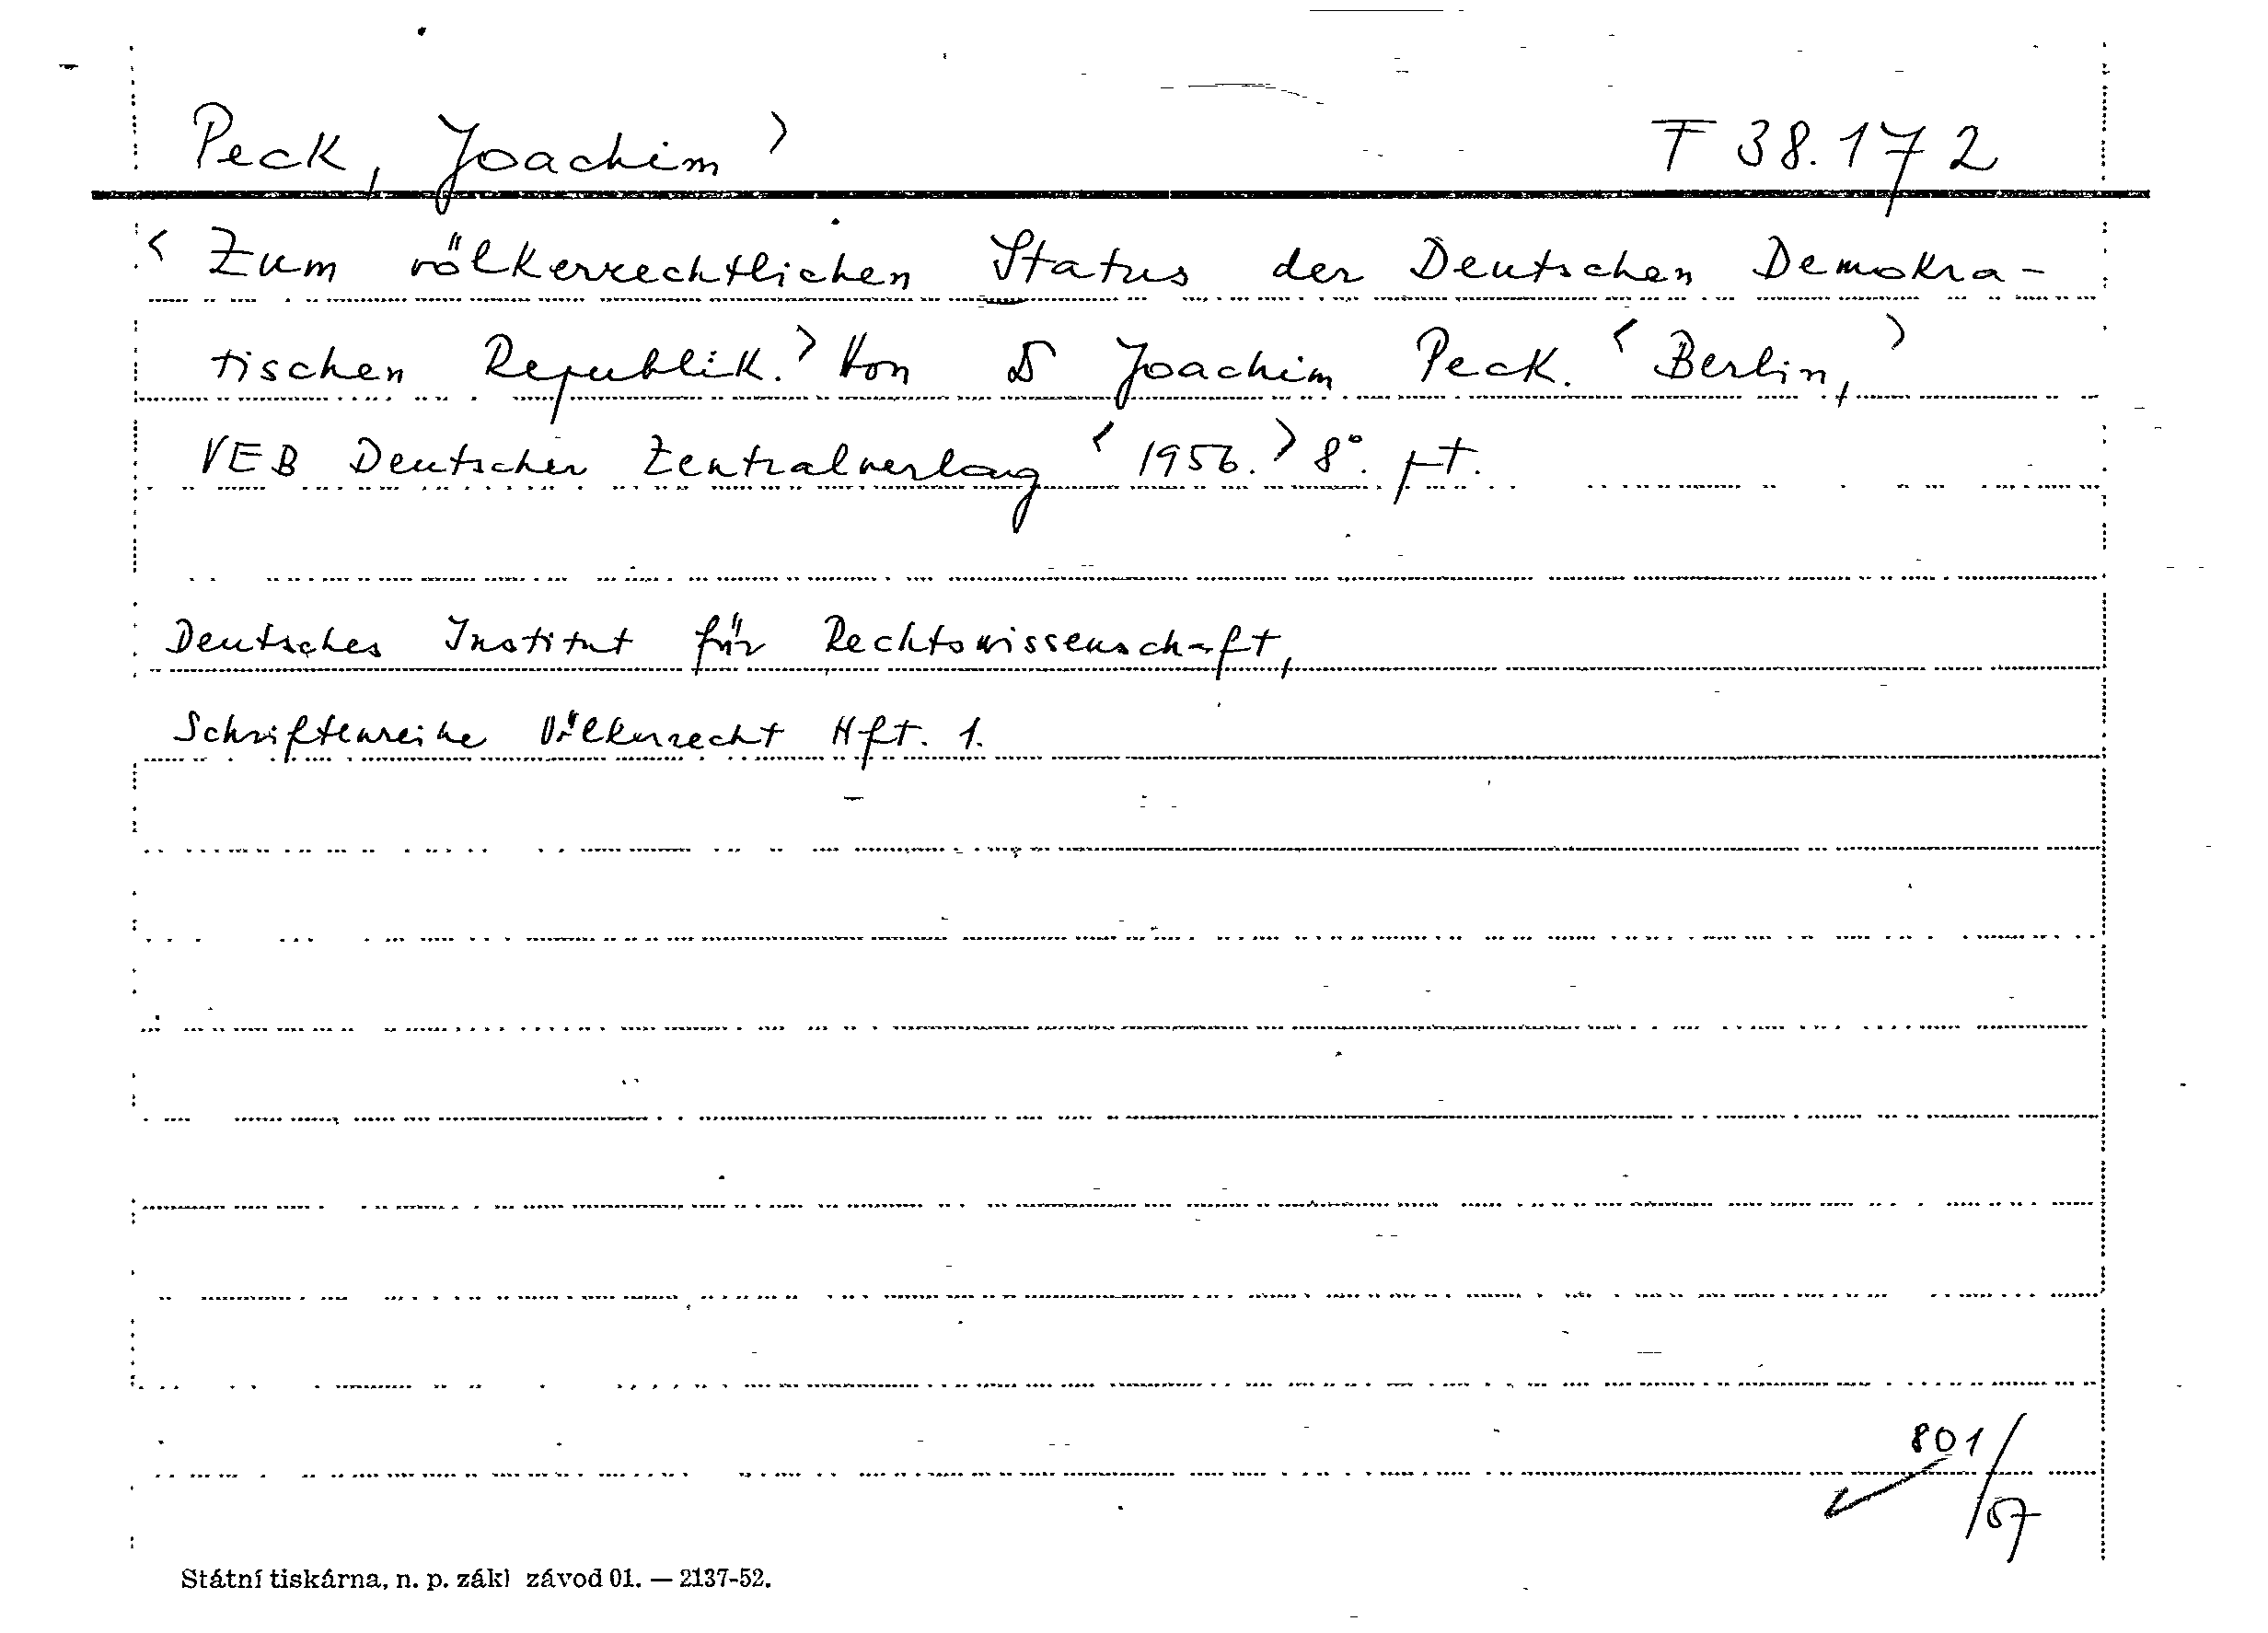 Peck, Joachim> F 38.172
<Zum völkerrechtlichen Status der Deutschen Demokra-
tischen Republik.> Von Joachim Peck. <Berlin,>
VEB Deutscher Zentralverlag <1956.> 8°.
Deutsches Institut für Rechtswissenschaft,
Schriftenreihe Völkerrecht Hft. 1.
801/57
Státní tiskárna, n. p. zákl závod 01. — 2137-52.